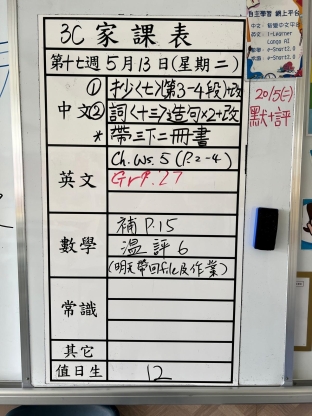 3C 家課表
第十七週 5月13日(星期二)
中文
① 抄〈七〉(第3-4段)+改
② 詞〈十三〉造句×2+改
* 帶三下二冊書
英文
Ch. Ws. 5 (P.2-4)
Gr9. 27
數學
補 P.15
溫 評 6
(明天帶回file及作業)
常識
其它
值日生 12
20/5(二)
默+評
自主學習 網上平台